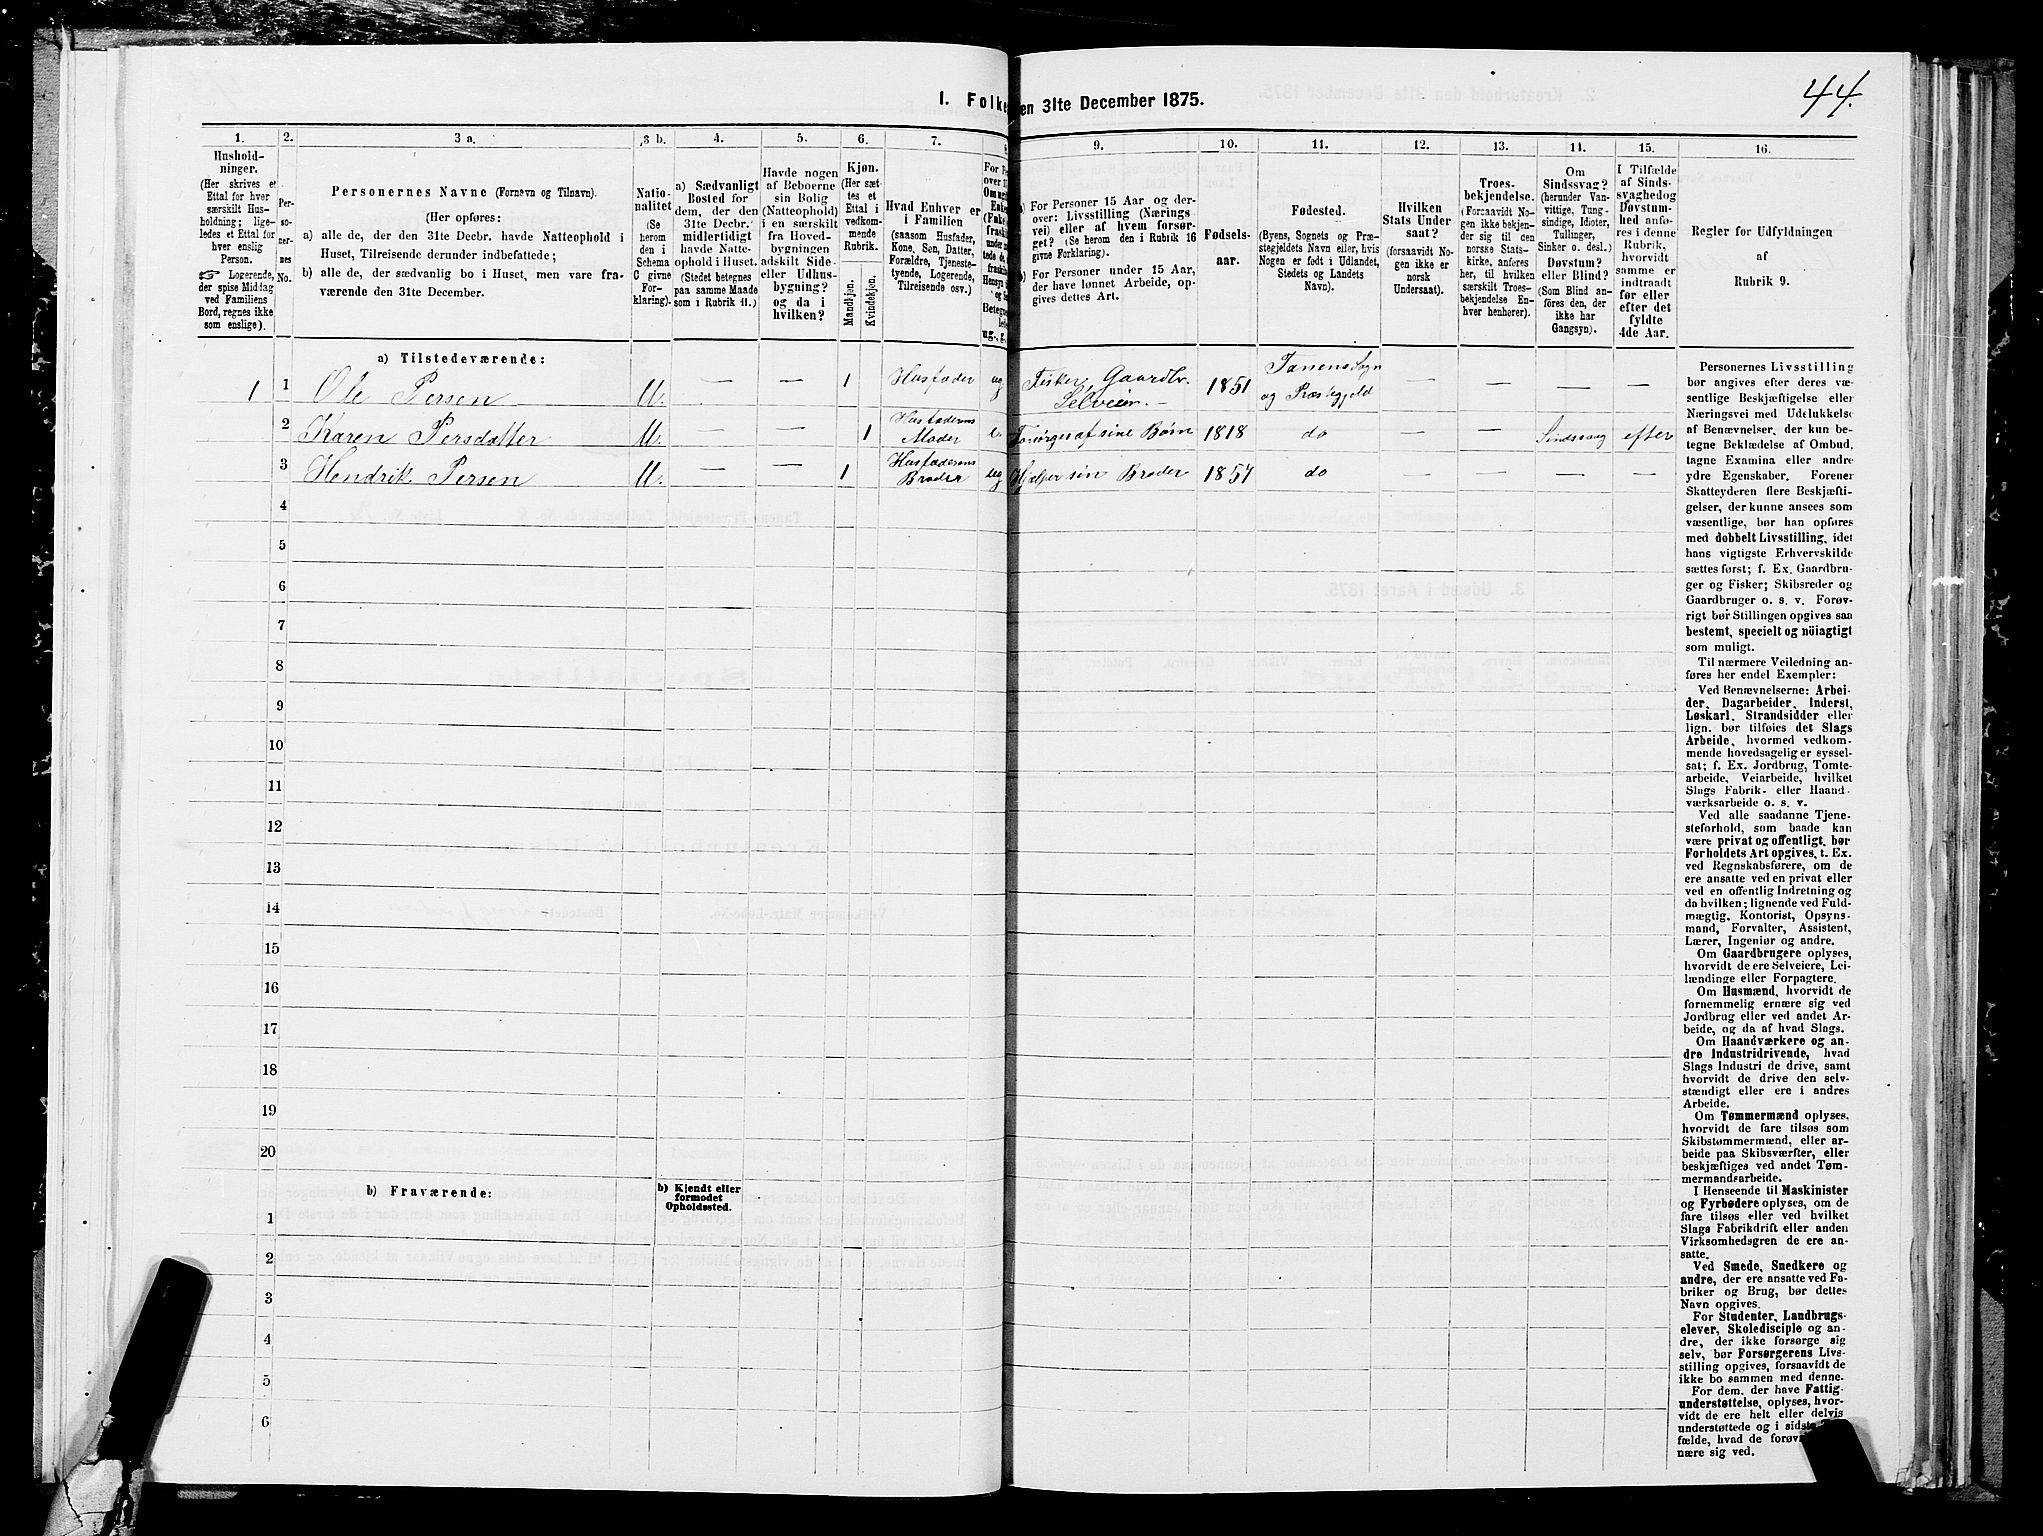 44.
1. Folke en 31te December 1875.
1. 2. 3 a. 3 b. 4. 5. 6. 7. 8 9. 10. 11. 12. 13. 14. 15. 16.
Hushold-
ninger.
(Her skrives et
Ettal for hver
særskilt Hus-
holdning; lige-
ledes et Ettal for
hver enslig
Person.
☞ Logerende,
der spise Middag
ved Familiens
Bord, regnes ikke
som enslige).
Per-
so-
ner-
nes
No.
Personernes Navne (Fornavn og Tilnavn).
(Her opføres:
a) alle de, der den 31te Decbr. havde Natteophold i
Huset, Tilreisende derunder indbefattede;
b) alle de, der sædvanlig bo i Huset, men vare fra-
værende den 31te December.
Natio-
nalitet
(Se
herom
den i
Schema
C givne
For-
klaring).
a) Sædvanligt
Bosted for
dem, der den
31te Decbr.
midlertidigt
havde Natte-
ophold i Huset.
(Stedet betegnes
paa samme Maade
som i Rubrik 11.)
Havde nogen
af Beboerne
sin Bolig
(Natteophold)
i en særskilt
fra Hoved-
bygningen
adskilt Side-
eller Udhus-
bygning?
og da i
hvilken?
Kjøn.
(Her sæt-
tes et
Ettal i
vedkom-
mende
Rubrik.
Mandkjøn.
Kvindekjøn.
Hvad Enhver er
i Familien
(saasom Husfader,
Kone, Søn, Datter,
Forældre, Tjeneste-
tyende, Logerende,
Tilreisende osv.)
a) For Personer 15 Aar og der-
over: Livsstilling (Nærings-
vei) eller af hvem forsør-
get? (Se herom den i Rubrik 16
givne Forklaring).
b) For Personer under 15 Aar,
der have lønnet Arbeide, op-
gives dettes Art.
Fødsels-
aar.
Fødested.
(Byens, Sognets og Præ-
stegjeldets Navn eller, hvis
Nogen er født i Udlandet,
Stedets og Landets
Navn).
Hvilken
Stats Under
saat?
(forsaavidt No-
gen ikke er
norsk
Undersaat).
Troes-
bekjendelse.
(Forsaavidt No-
gen ikke bekjen-
der sig til den
norske Stats-
kirke, anføres
her, til hvilken
særskilt Troes-
bekjendelse En-
hver henhører).
Om
Sindssvag?
(herunder Van-
vittige, Tung-
sindige, Idioter,
Tullinger,
Sinker o. desl.)
Døvstum?
eller Blind?
(Som Blind an-
føres den, der
ikke har
Gangsyn).
I Tilfælde
af Sinds-
svaghedog
Døvstum-
hed anfø-
res i denne
Rubrik,
hvorvidt
samme er
indtraadt
før eller
efter det
fyldte
4de Aar.
Regler for Udfyldningen
af
Rubrik 9.
a) Tilstedeværende:
1 1 Ole Persen M. — — 1 Husfader ug Fisker, Gaardbr. Selveier. — 1851 Tanens Sogn og Præstegjeld — — — —
2 Karen Persdatter M. — — 1 Husfaderens Moder e. Forsørges af sine Børn 1818 do — — Sindssvag efter
3 Hendrik Persen M. — — 1 Husfaderens Broder ug Hjælper sin Broder 1857 do — — — —
4
5
6
7
8
9
10
11
12
13
14
15
16
17
18
19
20
b) Fraværende:
b) Kjendt eller
formodet
Opholdssted.
1
2
3
4
5
6
Personernes Livsstilling
bør angives efter deres væ-
sentlige Beskjæftigelse eller
Næringsvei med Udelukkelse
af Benævnelser, der kun be-
tegne Beklædelse af Ombud,
tagne Examina eller andre
ydre Egenskaber. Forener
Skatteyderen flere Beskjæfti-
gelser, der kunne ansees som
væsentlige, bør han opføres
med dobbelt Livsstilling, idet
hans vigtigste Erhvervskilde
sættes først; f. Ex. Gaardbru-
ger og Fisker; Skibsreder og
Gaardbruger o. s. v. Forøv-
rigt bør Stillingen opgives saa
bestemt, specielt og nöiagtigt
som muligt.
Til nærmere Veiledning an-
føres her endel Exempler:
Ved Benævnelserne: Arbei-
der, Dagarbeider, Inderst,
Løskarl, Strandsidder eller
lign. bør tilføies det Slags
Arbeide, hvormed vedkom-
mende hovedsagelig er syssel-
sat; f. Ex. Jordbrug, Tomte-
arbeide, Veiarbeide, hvilket
Slags Fabrik- eller Haand-
værksarbeide o. s. v.
Ved alle saadanne Tjene-
steforhold, som baade kan
være privat og offentligt, bør
Forholdets Art opgives, t. Ex.
ved Regnskabsførere, om de
ere ansatte ved en privat eller
ved en offentlig Indretning og
da hvilken; lignende ved Fuld-
mægtig, Kontorist, Opsyns-
mand, Forvalter, Assistent,
Lærer, Ingeniør og andre.
Om Gaardbrugere oplyses,
hvorvidt de ere Selveiere, Lei-
lændinge eller Forpagtere.
Om Husmænd, hvorvidt de
fornemmelig ernære sig ved
Jordbrug eller ved andet Ar-
beide, og da af hvad Slags.
Om Haandværkere og an-
dre Industridrivende, hvad
Slags Industri de drive, samt
hvorvidt de drive den selv-
stændigt eller ere i andres
Arbeide.
Om Tømmermænd oplyses,
hvorvidt de fare tilsøs som
Skibstømmermænd, eller ar-
beide paa Skibsværfter, eller
beskjæftiges ved andet Tøm-
mermandsarbeide.
I Henseende til Maskinister
og Fyrbødere oplyses, om de
fare tilsøs eller ved hvilket
Slags Fabrikdrift eller anden
Virksomhedsgren de ere an-
satte.
Ved Smede, Snedkere og
andre, der ere ansatte ved Fa-
briker og Brug, bør dettes
Navn opgives.
For Studenter, Landbrugs-
elever, Skoledisciple og an-
dre, der ikke forsørge sig
selv, bør Forsørgerens Livs-
stilling opgives, forsaavidt de
ikke bo sammen med denne.
For dem, der have Fattig-
understøttelse, oplyses, hvor-
vidt de ere helt eller delvis
understøttede og i sidste
fælde, hvad de forøv
nære sig ved.